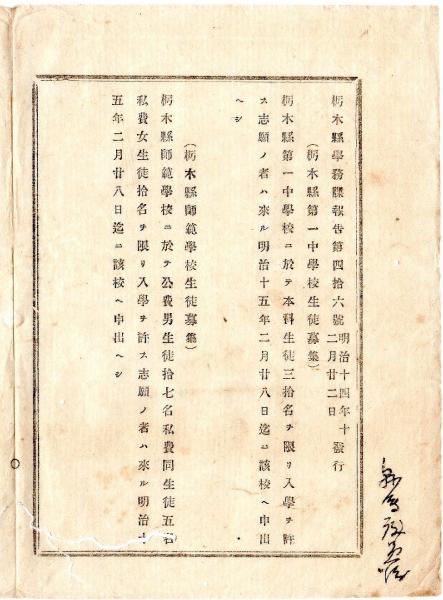 栃木縣學務課報告第四拾六號 明治十四年十二月廿二日發行
(栃木縣第一中學校生徒募集)
栃木縣第一中學校ニ於テ本科生徒三拾名ヲ限リ入學ヲ許
ス志願ノ者ハ來ル明治十五年二月廿八日迄ニ該校ヘ申出
ヘシ
(栃木縣師範學校生徒募集)
栃木縣師範學校ニ於テ公費男生徒拾七名私費同生徒五名
私費女生徒拾名ヲ限リ入學ヲ許ス志願ノ者ハ來ル明治十
五年二月廿八日迄ニ該校ヘ申出ヘシ